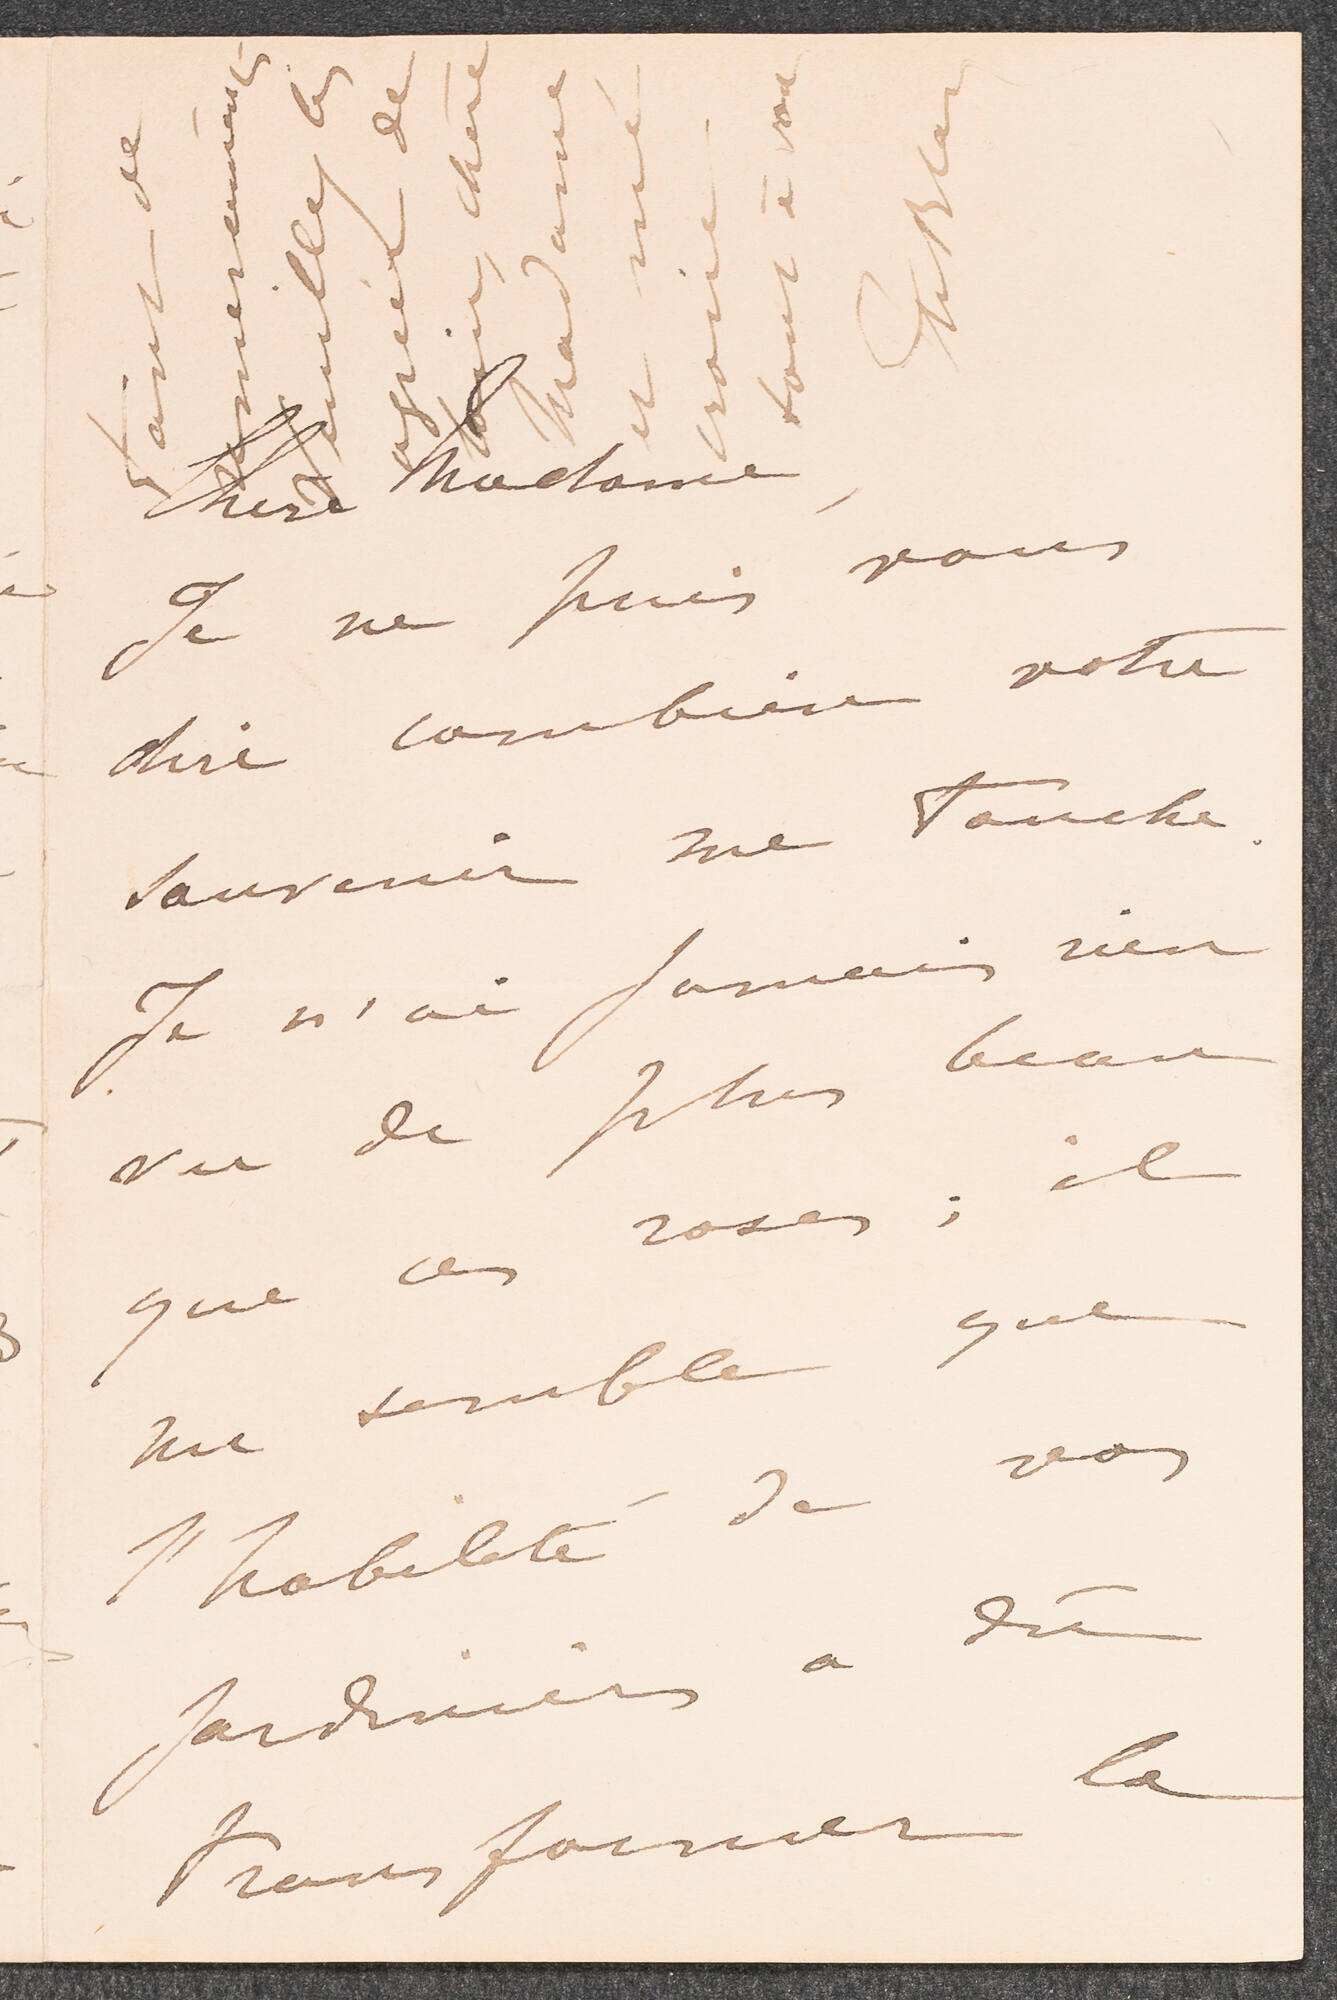 Chère Madame,
Je ne puis vous
dire combien votre
souvenir me touche.
Je n'ai jamais rien
vu de plus beau
que ces roses; il
me semble que
l'habileté de vos
jardiniers a dû
transformer la
tant de
remerciements
veuille les
agréer de
loin, chère
Madame
et me
croire
tout à vous